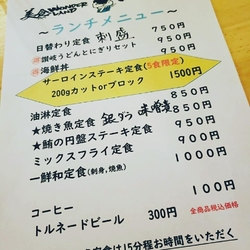 美食WONDER LAND
～ランチメニュー～
日替わり定食 刺盛 750円
讃岐うどんとにぎりセット 950円
海鮮丼 950円
サーロインステーキ定食(5食限定)
200gカットorブロック 1500円
油淋定食 850円
★焼き魚定食 銀ダラ味噌煮 850円
★鮪の円盤ステーキ定食 950円
ミックスフライ定食 900円
一鮮和定食(刺身,焼魚) 1000円
コーヒー 100円
トルネードビール 300円 全商品税込価格
定食は15分程お時間をいただく